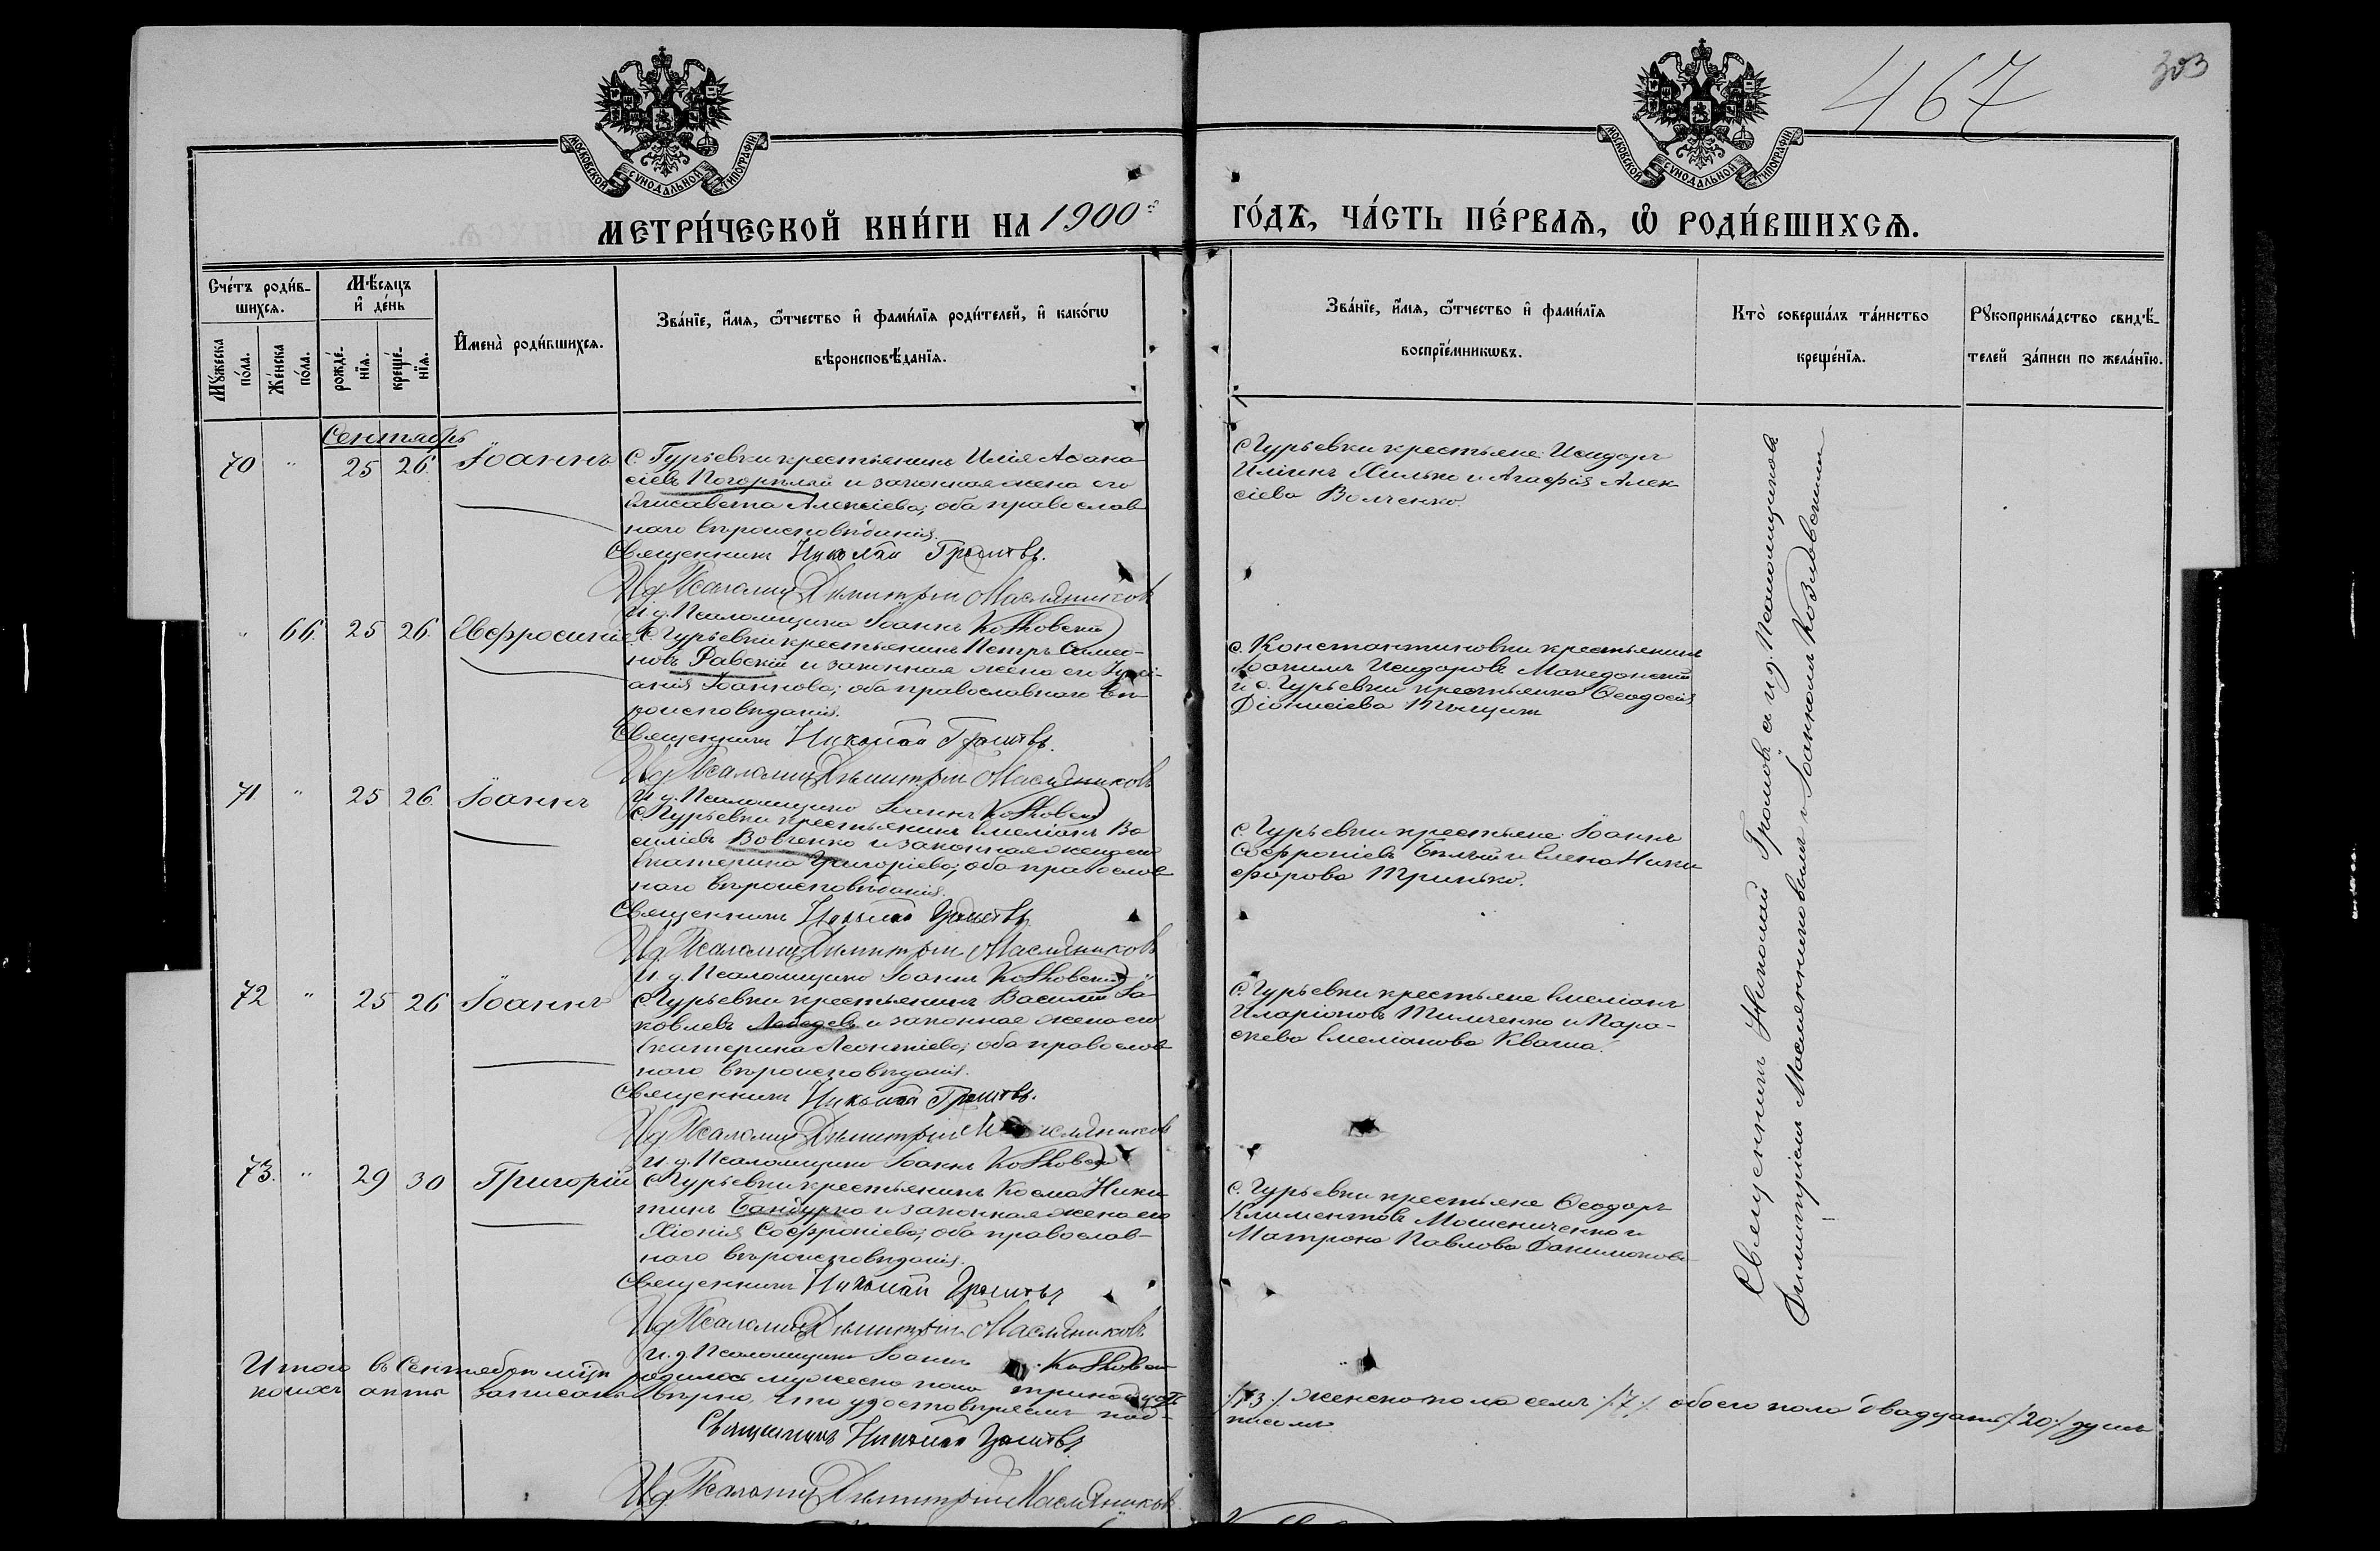 467
303
МОСКОВСКОЙ СѴНОДАЛЬНОЙ ТИПОГРАФІИ
МОСКОВСКОЙ СѴНОДАЛЬНОЙ ТИПОГРАФІИ
МЕТРИ́ЧЕСКОЙ КНИ́ГИ НА 1900 ГО́ДЪ, ЧА́СТЬ ПЕ́РВАѦ, Ѡ҆ РОДИ́ВШИХСѦ.
Сче́тъ роди́в-
шихсѧ.
Мꙋ́жеска по́ла.
Же́нска по́ла.
Мѣ́сѧцъ
и҆ де́нь
рожде́-
нїѧ.
креще́-
нїѧ.
И҆мена̀ роди́вшихсѧ.
Зва́нїе, и҆́мѧ, ѻ҆́тчество и҆ фами́лїѧ роди́телей, и҆ како́гѡ
вѣроисповѣ́данїѧ.
Зва́нїе, и҆́мѧ, ѻ҆́тчество и҆ фами́лїѧ
воспрїе́мникѡвъ.
Кто̀ соверша́лъ та́инство
креще́нїѧ.
Рꙋкоприкла́дство свидѣ́-
телей за́писи по жела́нїю.
Сентябрь
70 " 25 26. Іоаннъ
С. Гурьевки крестьянинъ Илія Аѳана-
сіевъ Погорѣлый и законная жена его
Елисавета Алексіева; оба православ-
наго вѣроисповѣданія.
Священникъ Николай Громовъ.
И д Псаломщ Димитрій Масляниковъ
И. д. Псаломщика Іоаннъ Козловскій
С. Гурьевки крестьяне: Исидоръ
Иліинъ Хилько и Агафія Алек-
сіева Волченко.
" 66. 25 26. Евфросинія
С. Гурьевки крестьянинъ Петръ Симео-
новъ Равскій и законная жена его
Іоаннова; оба православнаго вѣ-
роисповѣданія.
Священникъ Николай Громовъ.
И д Псаломщ Димитрій Масляниковъ
И. д. Псаломщика Іоаннъ Козловскій
с. Константиновки крестьянинъ
Іоакимъ Исидоровъ Македонскій
и с. Гурьевки крестьянка Ѳеодосія
Діонисіева
71. " 25 26. Іоаннъ
С. Гурьевки крестьянинъ Емеліанъ Ва-
силіевъ Вовченко и законная жена его
Екатерина Григоріева; оба православ-
наго вѣроисповѣданія.
Священникъ Николай Громовъ.
И д Псаломщ Димитрій Масляниковъ
И. д. Псаломщика Іоаннъ Козловскій
С. Гурьевки крестьяне: Іоаннъ
Софроніевъ Бѣлый и Елена Ники-
форова Тринько.
72 " 25 26 Іоаннъ
С. Гурьевки крестьянинъ Василій Іа-
ковлевъ Лебедевъ и законная жена его
Екатерина Леонтіева; оба православ-
наго вѣроисповѣданія.
Священникъ Николай Громовъ.
И д Псаломщ Димитрій Масляниковъ
И. д. Псаломщика Іоаннъ Козловскій
С. Гурьевки крестьяне Емеліанъ
Иларіоновъ Тимченко и Пара-
скева Емеліанова Кваша.
73. " 29 30 Григорій
С. Гурьевки крестьянинъ Косма Ники-
тинъ Бандурка и законная жена его
Хіонія Софроніева; оба православ-
наго вѣроисповѣданія.
Священникъ Николай Громовъ
И д Псаломщ Димитрій Масляниковъ
И. д. Псаломщика Іоаннъ Козловскій
С. Гурьевки крестьяне Ѳеодоръ
Климентовъ Мошениченко и
Матрона Павлова
Священникъ Николай Громовъ с и. д. Псаломщиковъ
Димитріемъ Маслениковымъ и Іоанномъ Козловскимъ
Итого въ Сентябрѣ мцѣ родилось мужеска пола тринадцать /13/ женска пола семь /7/ обоего пола двадцать /20/ душъ
коихъ акты записаны вѣрно, что удостовѣряемъ под-
писомъ
Священникъ Николай Громовъ.
И д Псаломщ Димитрій Масляниковъ